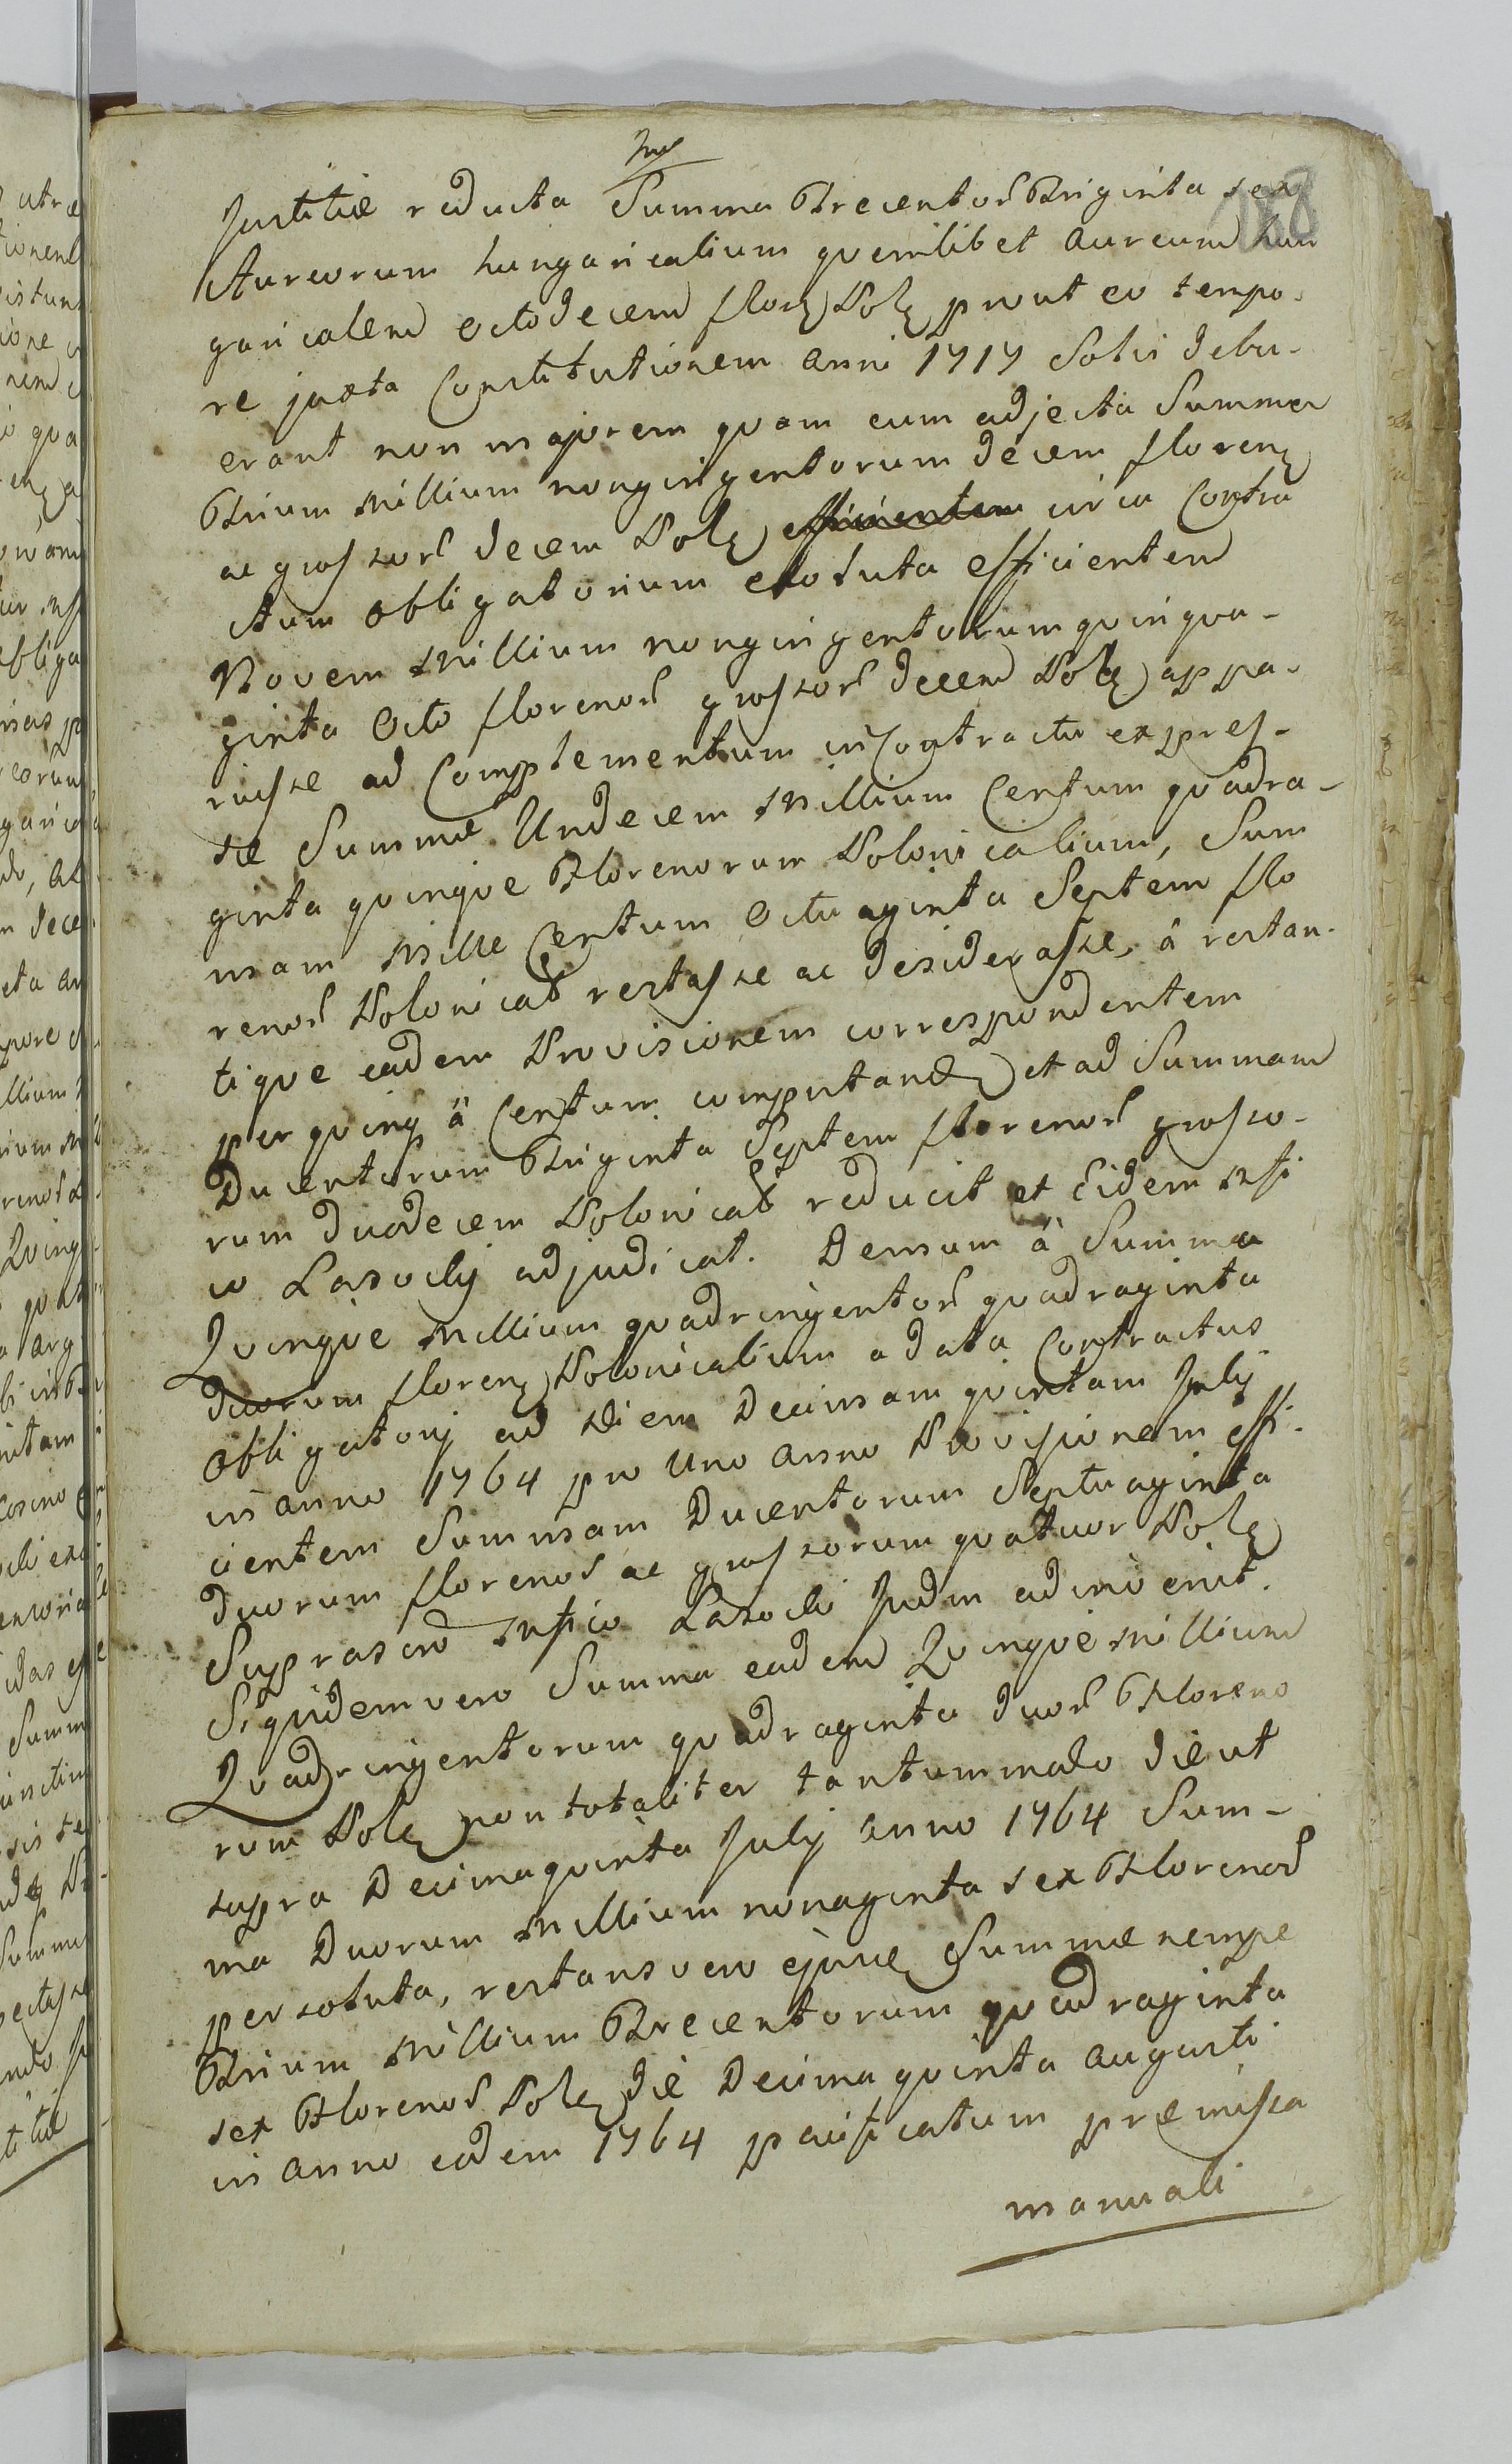 188
Justitiæ reducta Summa Trecentor Triginta sex
Aureorum hungaricalium quemlibet aureum hun
garicalem octodecem flor Pol prout eo tempo-
re juxta Constitutionem anni 1717 Solvi debu-
erant non majorem quam cum adjecta Summa
Trium Millium nongingentorum decem floren
ac grossor decem Pol efficientem circa Contra
ctum obligatorium exoluta efficientem
Novem Millium nongingentorum quinqua-
ginta octo florenor grossor decem Pol appa-
ruisse ad Complementum in Contractu expres-
sæ Summæ Undecem Millium Centum quadra-
ginta quinque Florenorum Polonicalium, Sum
mam Mille Centum octuaginta Septem flo
renor Polonical restasse ac desiderasse, à restan-
tique eadem Provisionem correspondentem
per quinq à Centum computand et ad Summam
Ducentorum Triginta Septem florenor grosso-
rum duodecem Polonical reducit et Eidem Mfi
co Lasocky adjudicat. Demum à Summa
Quinque Millium quadringentor quadraginta
duorum floren Polonicalium a data Contractus
obligatorij ad Diem Decimam quintam July
in anno 1764 pro Uno anno Provisionem effi-
cientem Summam Ducentorum Septuaginta
duorum florenor ac grossorum quatuor Pol
Suprascrō Mfico Lasocki Judm adinvenit.
Siquidem vero Summa eadem Quinque Millium
Quadringentorum quadraginta duor Floreno
rum Pol non totaliter tantummodo die ut
supra Decima quinta July anno 1764 Sum-
ma Duorum Millium nonaginta sex Florenor
persoluta, restans vero ejusd Summæ nempe
Trium Millium Trecentorum quadraginta
sex Florenor Pol die Decima quinta Augusti
in anno eodem 1764 pacificatum præmissa
manuali